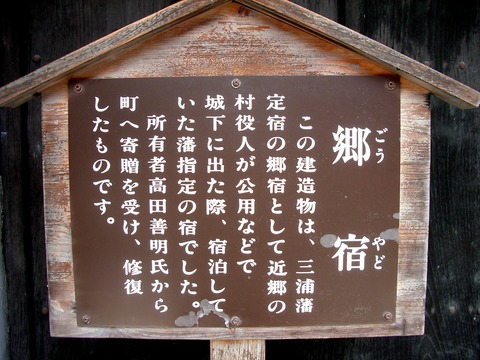 郷宿
ごうやど
この建造物は、三浦藩
定宿の郷宿として近郷の
村役人が公用などで
城下に出た際、宿泊して
いた藩指定の宿でした。
所有者高田善明氏から
町へ寄贈を受け、修復
したものです。